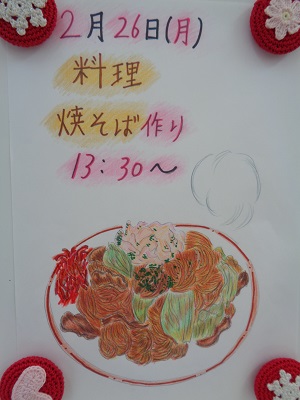 2月26日(月)
料理
焼そば作り
13:30～